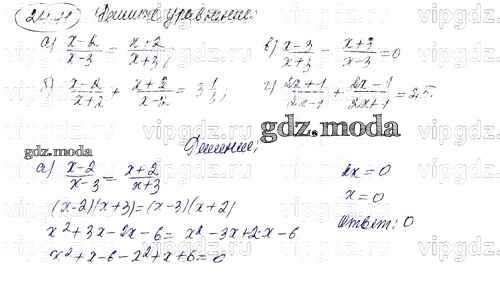 Решите уравнение:
а) x-2/x-3 = x+2/x+3;
в) x-3/x+3 - x+3/x-3 = 0
б) x-2/x+2 + x+2/x-2 = 3 1/3;
г) 2x+1/2x-1 + 2x-1/2x+1 = 2,5.
gdz.moda
gdz.moda
Решение:
а) x-2/x-3 = x+2/x+3
(x-2)(x+3)=(x-3)(x+2)
x²+3x-2x-6= x²-3x+2x-6
x²+x-6-x²+x+6=0
2x=0
x=0
Ответ: 0
vipgdz